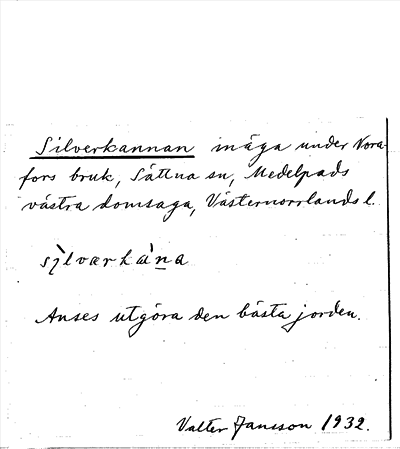 Silverkannan inäga under Nora-
fors bruk, Sättna sn, Medelpads
västra domsaga, Västernorrlands l.
sìlværkàna
Anses utgöra den bästa jorden.
Valter Jansson 1932.